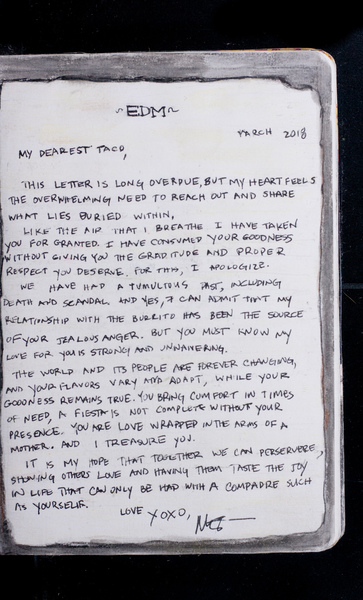 ~EDM~
MARCH 2018
MY DEAREST TACO,
THIS LETTER IS LONG OVERDUE, BUT MY HEART FEELS
THE OVERWHELMING NEED TO REACH OUT AND SHARE
WHAT LIES BURIED WITHIN.
LIKE THE AIR THAT I BREATHE I HAVE TAKEN
YOU FOR GRANTED. I HAVE CONSUMED YOUR GOODNESS
WITHOUT GIVING YOU THE GRADITUDE AND PROPER
RESPECT YOU DESERVE. FOR THIS, I APOLOGIZE.
WE HAVE HAD A TUMULTOUS PAST, INCLUDING
DEATH AND SCANDAL AND YES, I CAN ADMIT THAT MY
RELATIONSHIP WITH THE BURRITO HAS BEEN THE SOURCE
OF YOUR JEALOUS ANGER. BUT YOU MUST KNOW MY
LOVE FOR YOU IS STRONG AND UNWAIVERING.
THE WORLD AND ITS PEOPLE ARE FOREVER CHANGING,
AND YOUR FLAVORS VARY AND ADAPT, WHILE YOUR
GOODNESS REMAINS TRUE. YOU BRING COMFORT IN TIMES
OF NEED, A FIESTA IS NOT COMPLETE WITHOUT YOUR
PRESENCE. YOU ARE LOVE WRAPPED IN THE ARMS OF A
MOTHER. AND I TREASURE YOU.
IT IS MY HOPE THAT TOGETHER WE CAN PERSERVERE,
SHOWING OTHERS LOVE AND HAVING THEM TASTE THE JOY
IN LIFE THAT CAN ONLY BE HAD WITH A COMPADRE SUCH
AS YOURSELF.
LOVE XOXO,